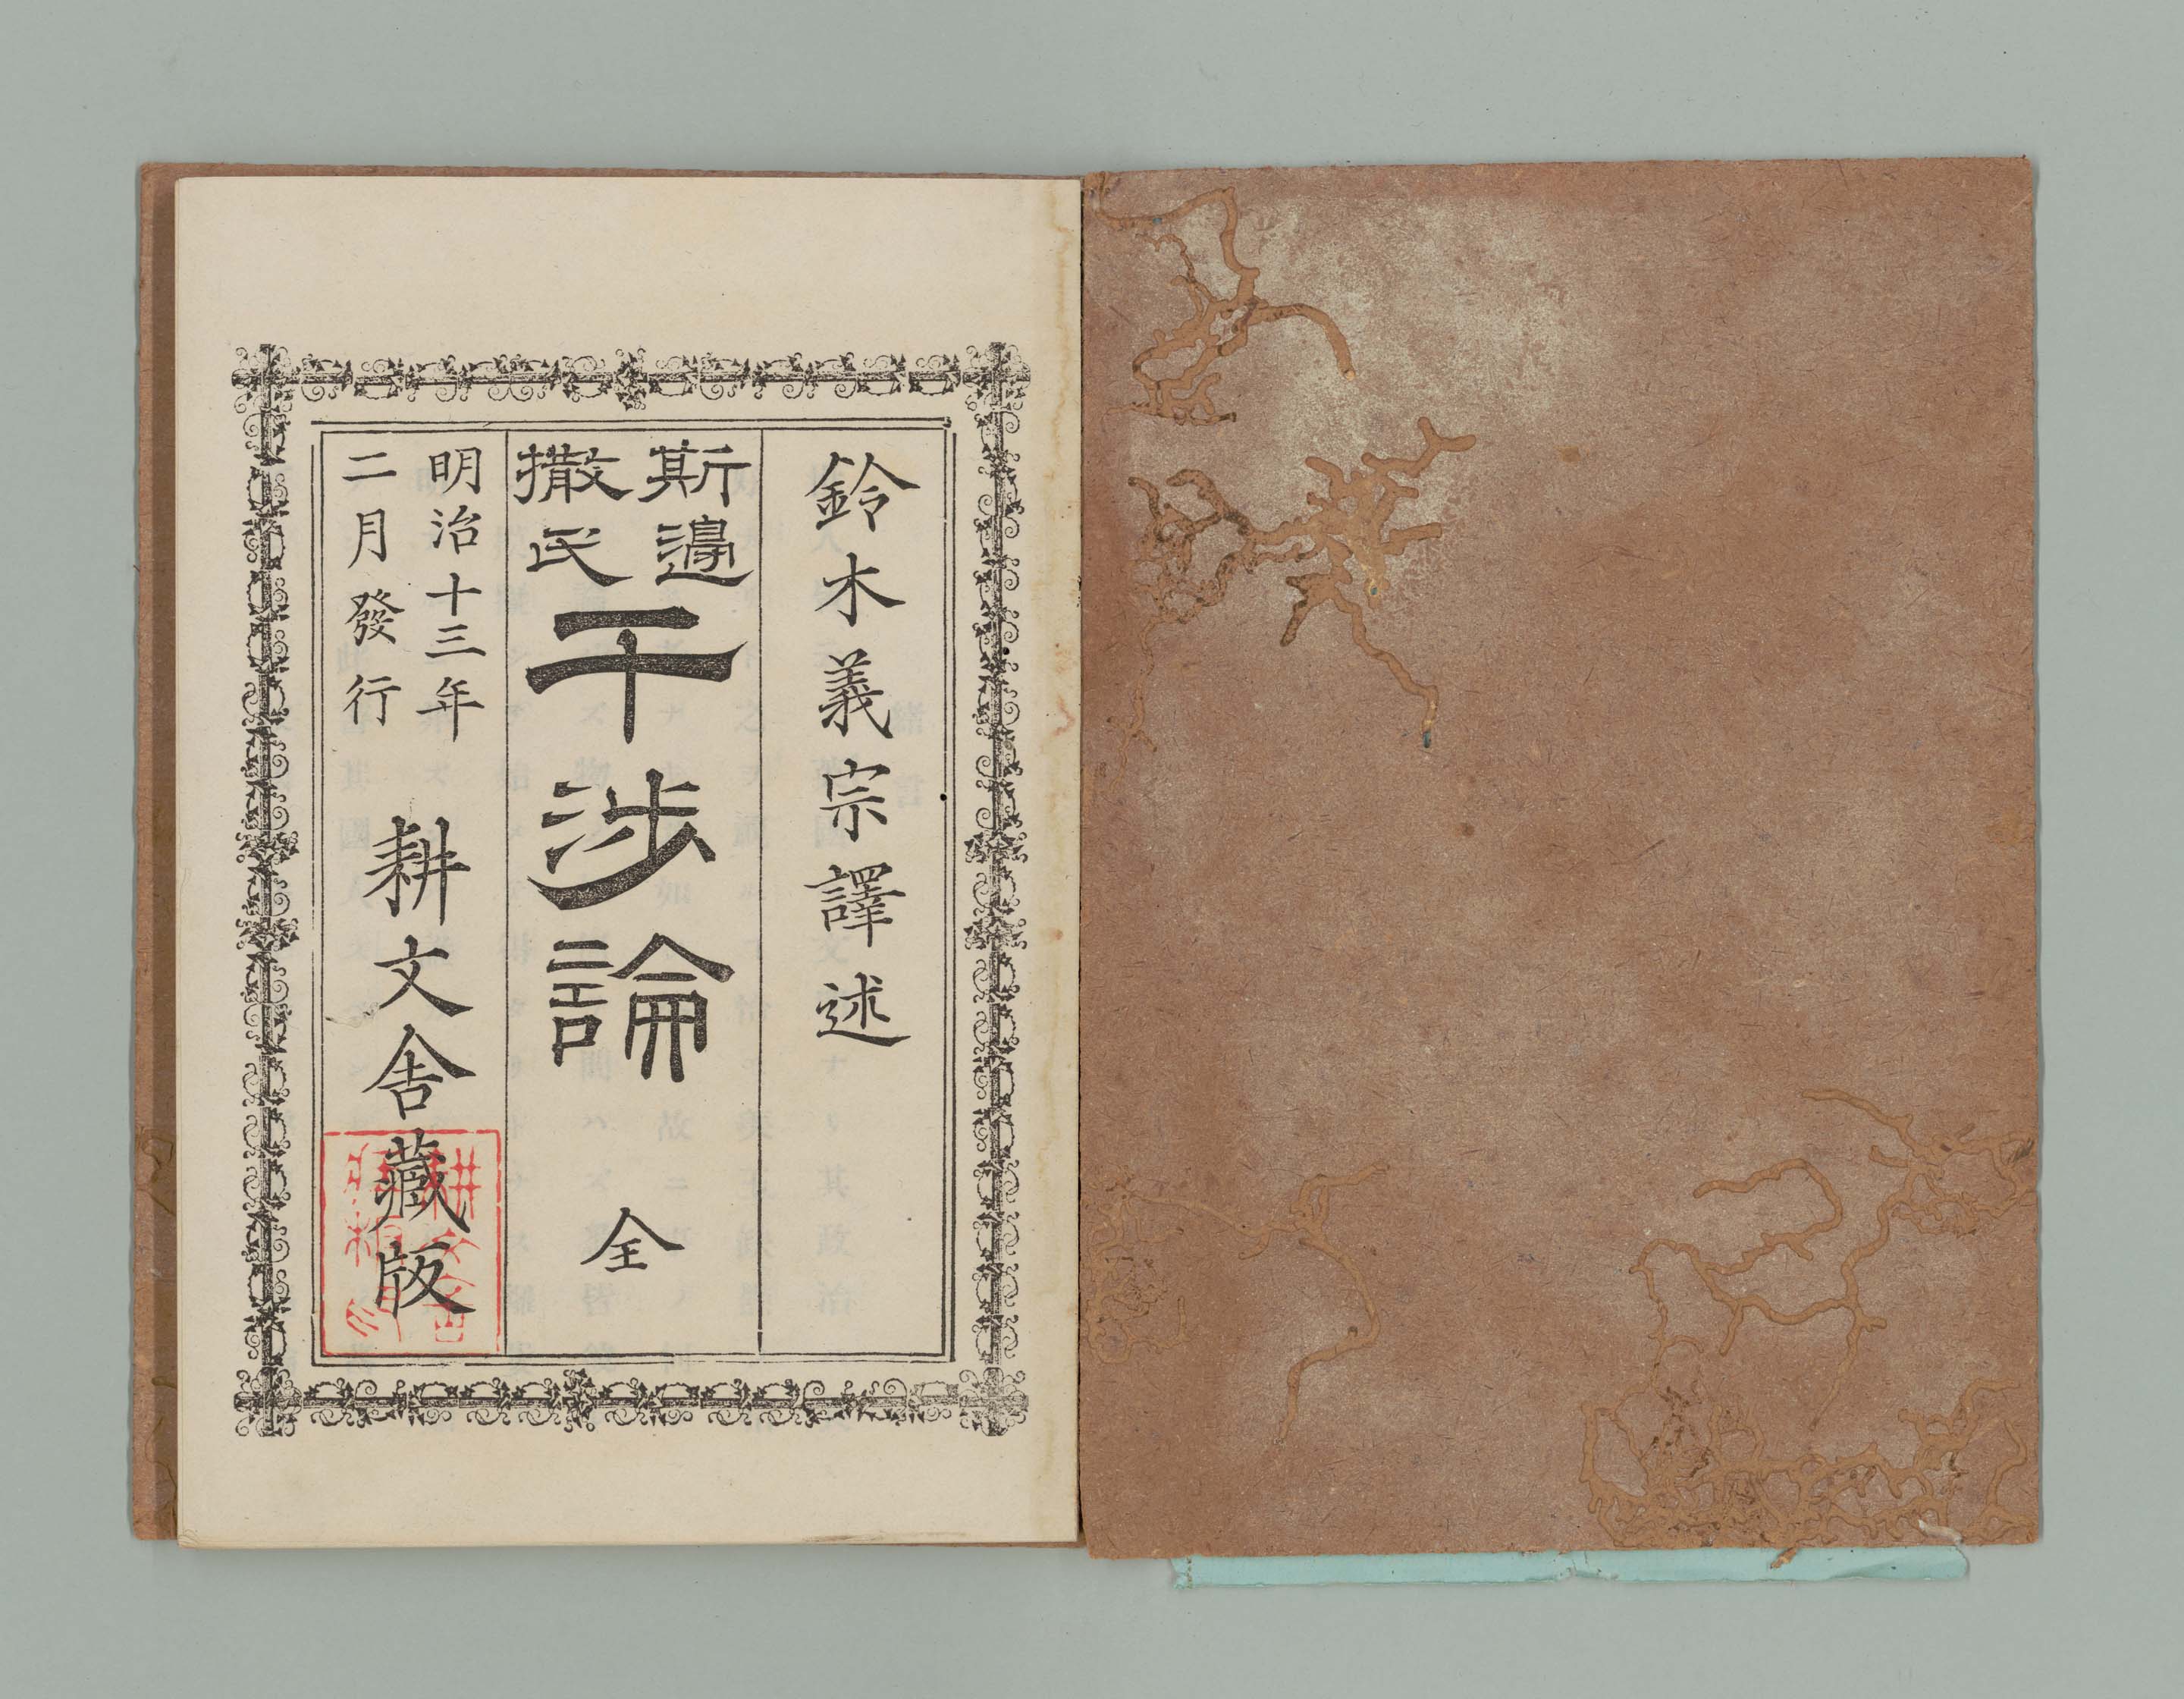 鈴木義宗譯述
斯邊
撒氏
干涉論 全
明治十三年
二月發行
耕文舎藏版